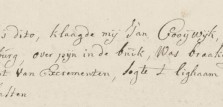 s dito, klaagde mij Jan Crooijwijk,
burg, over pijn in de buik, Was braaki
t van Excrementen, zegte t lighaam
atten